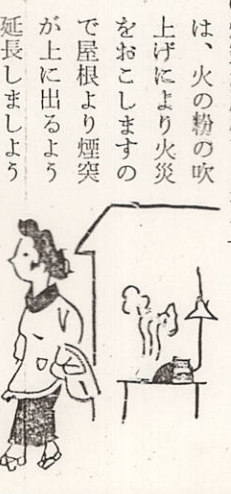 は、火の粉の吹
上げにより火災
をおこしますの
で屋根より煙突
が上に出るよう
延長しましよう